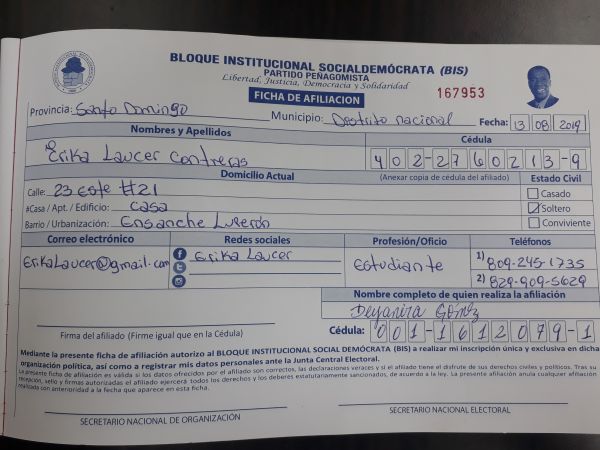 BLOQUE INSTITUCIONAL SOCIALDEMÓCRATA (BIS)
PARTIDO PEÑAGOMISTA
Libertad, Justicia, Democracia y Solidaridad
FICHA DE AFILIACION
167953
Provincia: Santo Domingo Municipio: Destrito nacional Fecha: 13 08 2019
Nombres y Apellidos Cédula
Erika Laucer Contreras 402-2760213-9
Domicilio Actual (Anexar copia de cédula del afiliado) Estado Civil
Calle: 23 este #21 Casado
#Casa / Apt. / Edificio: casa Soltero
Barrio / Urbanización: Ensanche Luperón Conviviente
Correo electrónico Redes sociales Profesión/Oficio Teléfonos
ErikaLaucer@gmail.com Erika Laucer Estudiante 1) 809-245-1735
2) 829-909-5629
Nombre completo de quien realiza la afiliación
Deyanira Gómez
Firma del afiliado (Firme igual que en la Cédula) Cédula: 001-1612079-1
Mediante la presente ficha de afiliación autorizo al BLOQUE INSTITUCIONAL SOCIAL DEMÓCRATA (BIS) a realizar mi inscripción única y exclusiva en dicha
organización política, así como a registrar mis datos personales ante la Junta Central Electoral.
La presente ficha de afiliación es válida si los datos ofrecidos por el afiliado son correctos, las declaraciones veraces y si el afiliado tiene el disfrute de sus derechos civiles y políticos. Tras su
recepción, sello y firmas autorizadas el afiliado ejercerá todos los derechos y los deberes estatutariamente sancionados, de acuerdo a la ley. La presente afiliación anula cualquier afiliación
realizada con anterioridad a la fecha que aparece en esta ficha.
SECRETARIO NACIONAL DE ORGANIZACIÓN SECRETARIO NACIONAL ELECTORAL